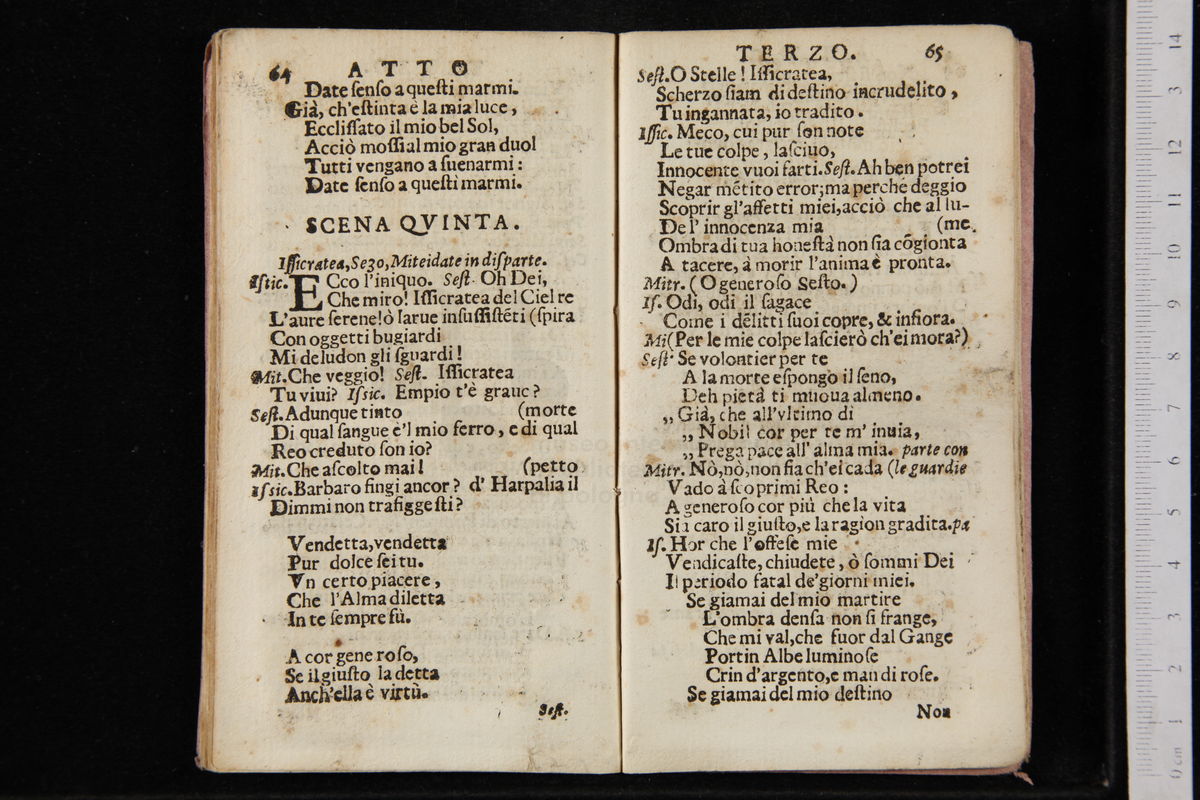 64 ATTO
Date ſenſo a queſti marmi.
Già, ch'eſtinta è la mia luce,
Eccliſſato il mio bel Sol,
Acciò moſſi al mio gran duol
Tutti vengano a ſuenarmi:
Date ſenſo a queſti marmi.
SCENA QVINTA.
Iſſicratea, Seʒo, Miteidate in diſparte.
Iſſic. ECco l'iniquo. Seſt. Oh Dei,
Che miro! Iſſicratea del Ciel re
L'aure ſerene! ò larue inſuſſiſtẽti (ſpira
Con oggetti bugiardi
Mi deludon gli ſguardi!
Mit. Che veggio! Seſt. Iſſicratea
Tu viui? Iſsic. Empio t'è graue?
Seſt. Adunque tinto (morte
Di qual ſangue e'l mio ferro, e di qual
Reo creduto ſon io?
Mit. Che aſcolto mai! (petto
Iſsic. Barbaro fingi ancor? d'Harpalia il
Dimmi non trafiggeſti?
Vendetta, vendetta
Pur dolce ſei tu.
Vn certo piacere,
Che l'Alma diletta
In te ſempre fù.
A cor generoſo,
Se il giuſto la detta
Anch'ella è virtù.
Seſt.
TERZO. 65
Seſt. O Stelle! Iſſicratea,
Scherzo ſiam di deſtino incrudelito,
Tu ingannata, io tradito.
Iſſic. Meco, cui pur ſon note
Le tue colpe, laſciuo,
Innocente vuoi farti. Seſt. Ah ben potrei
Negar mẽtito error; ma perche deggio
Scoprir gl'affetti miei, acciò che al lu-
De l' innocenza mia (me.
Ombra di tua honeſtà non ſia cõgionta
A tacere, à morir l'anima è pronta.
Mitr. (O generoſo Seſto.)
Iſ. Odi, odi il ſagace
Come i delitti ſuoi copre, & infiora.
Mi (Per le mie colpe laſcierò ch'ei mora?)
Seſt. Se volontier per te
A la morte eſpongo il ſeno,
Deh pietà ti muoua almeno.
„ Già, che all'vltimo di
„ Nobil cor per te m' inuia,
„ Prega pace all' alma mia. parte con
Mitr. Nò, nò, non fia ch'ei cada (le guardie
Vado à ſcoprimi Reo:
A generoſo cor più che la vita
Sia caro il giuſto, e la ragion gradita. pa
Iſ. Hor che l'offeſe mie
Vendicaſte, chiudete, ò ſommi Dei
Il periodo fatal de' giorni miei.
Se giamai del mio martire
L'ombra denſa non ſi frange,
Che mi val, che fuor dal Gange
Portin Albe luminoſe
Crin d'argento, e man di roſe.
Se giamai del mio deſtino
Non
14
13
12
11
10
9
8
7
6
5
4
3
2
1
0 cm